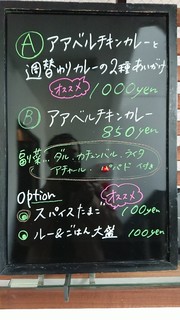 Ⓐ アアベルチキンカレーと
週替わりカレーの2種あいがけ
オススメ 1000yen
Ⓑ アアベルチキンカレー
850yen
副菜… ダル・カチュンバル・ライタ
アチャール・パパド 付き
Option
オススメ
スパイスたまご 100yen
ルー&ごはん大盛 100yen